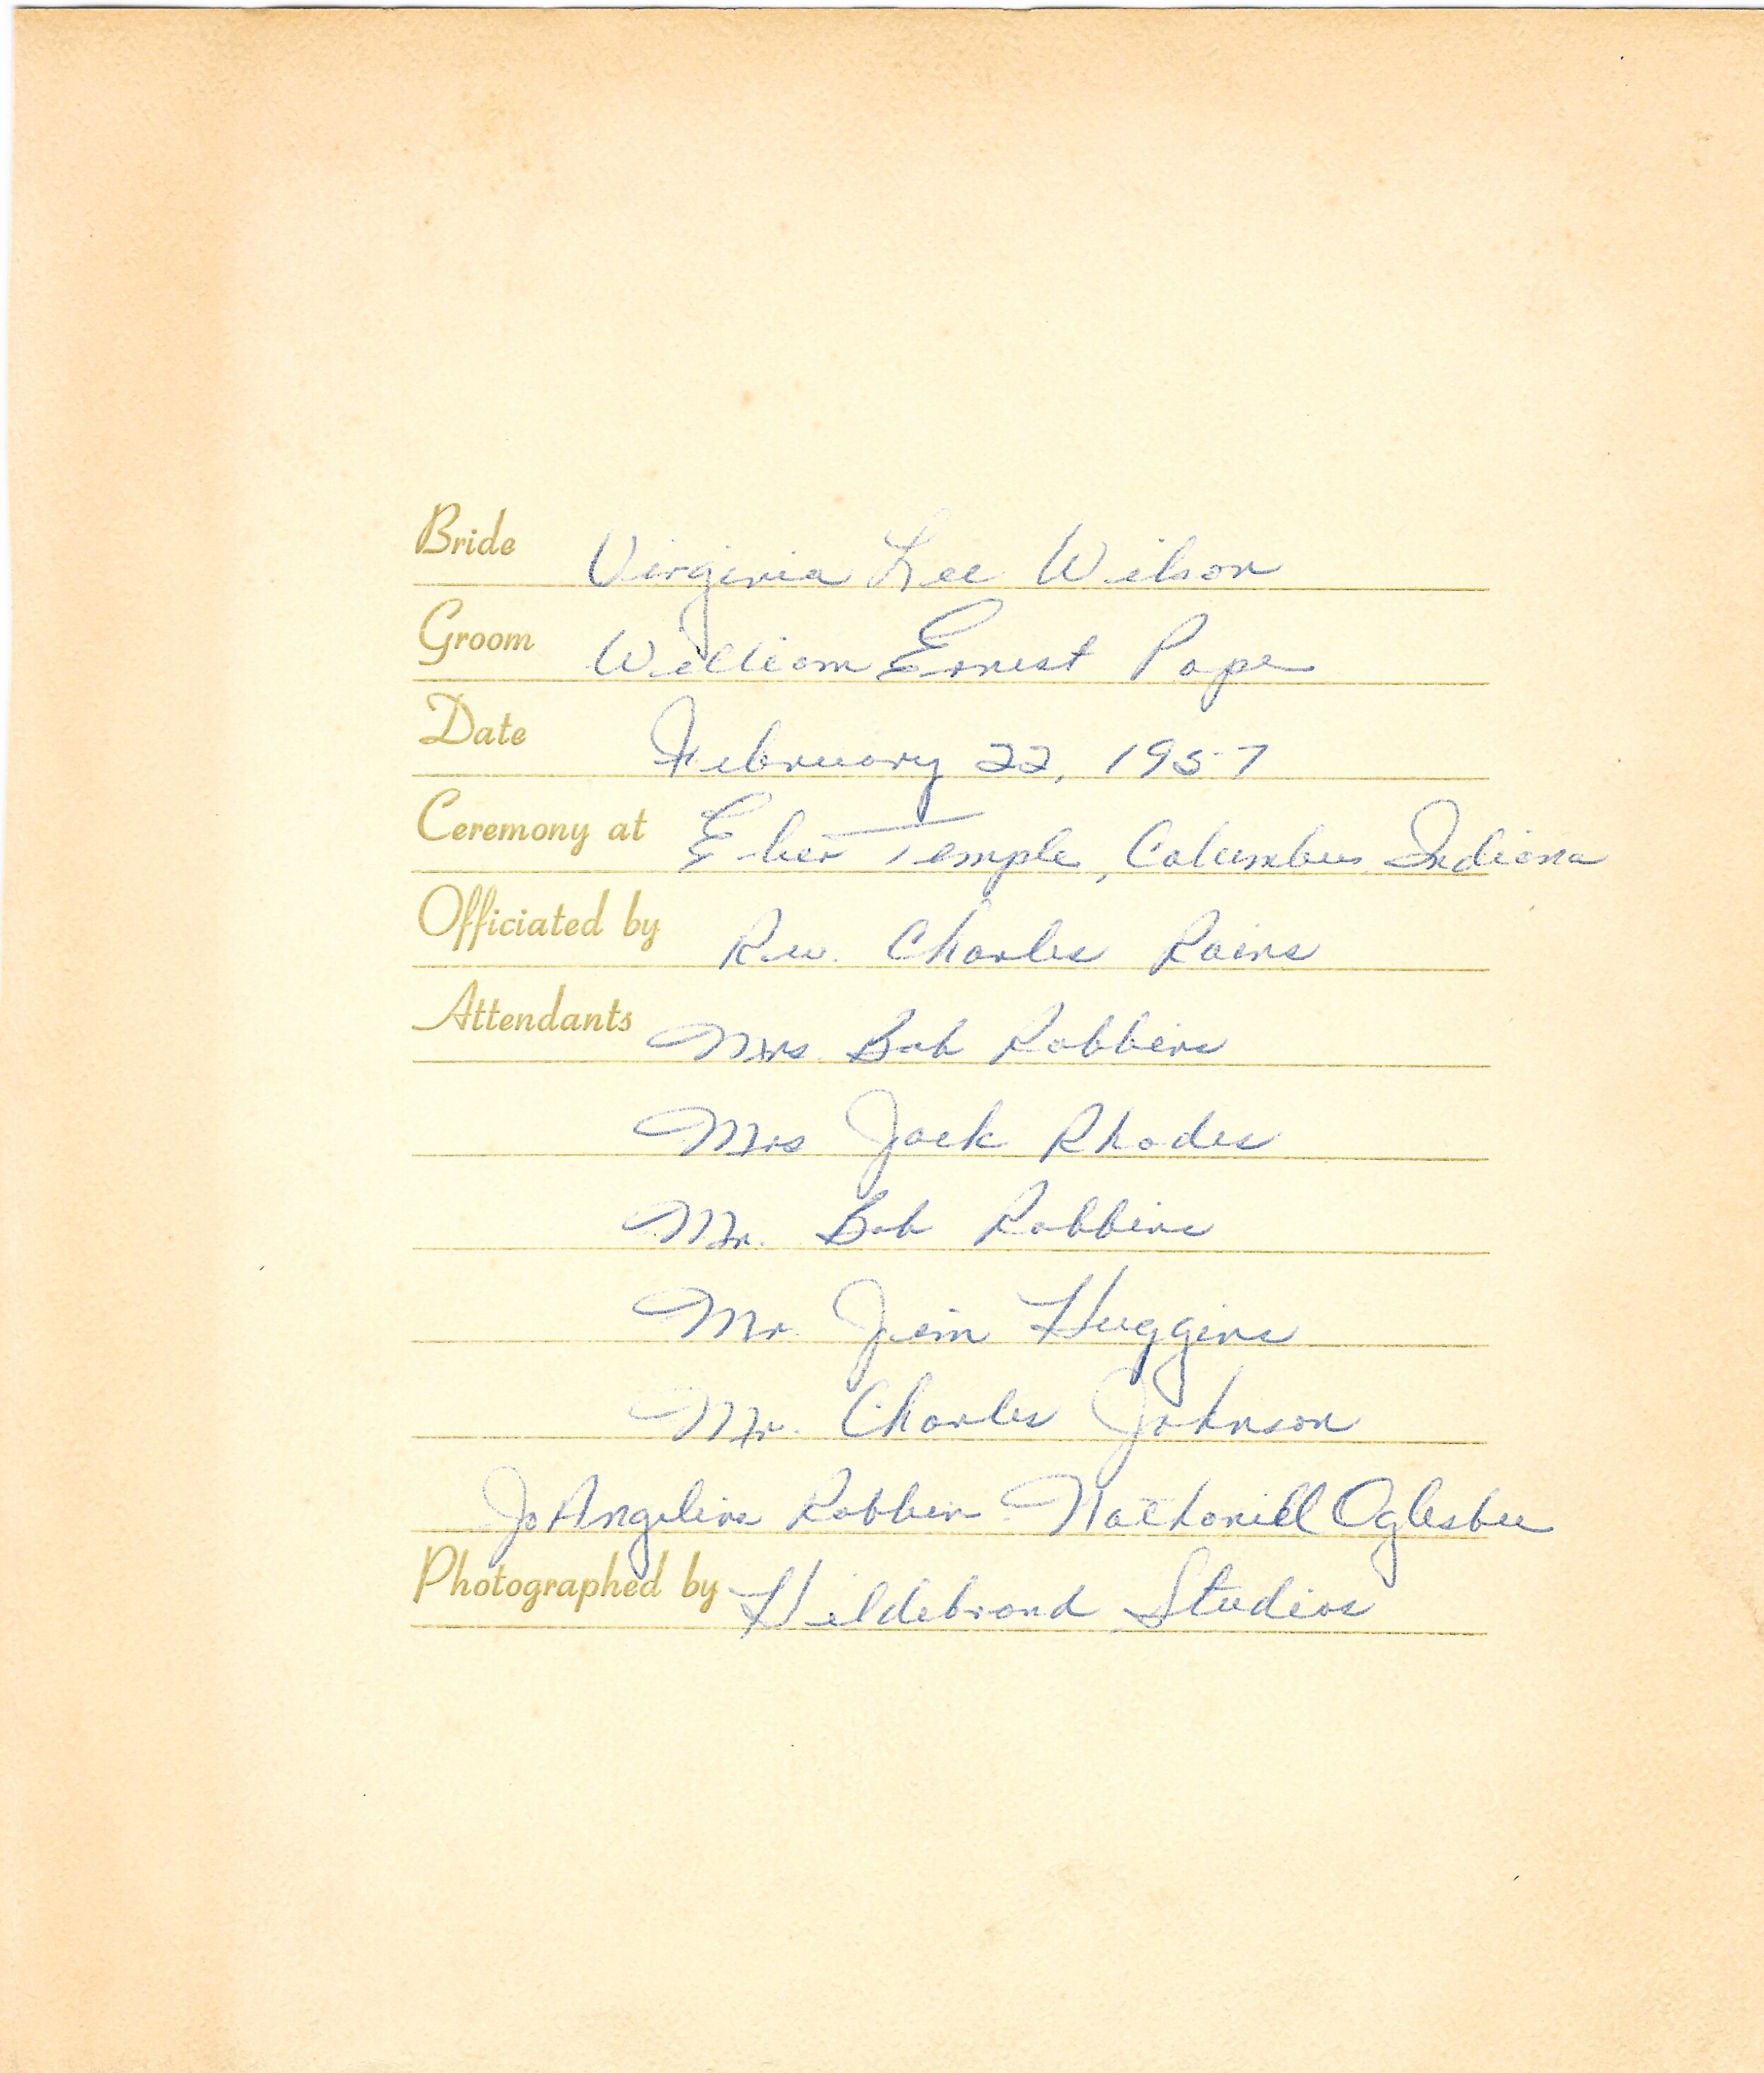 Bride Virginia Lee Wilson
Groom William Ernest Pope
Date February 22, 1957
Ceremony at Eber Temple, Columbus Indiana
Officiated by Rev. Charles Rains
Attendants Mrs. Bob Robbins
Mrs Jack Rhodes
Mr. Bob Robbins
Mr. Jim Huggins
Mr. Charles Johnson
Jo Angelina Robbins Nathaniell Oglesbee
Photographed by Hildebrand Studios